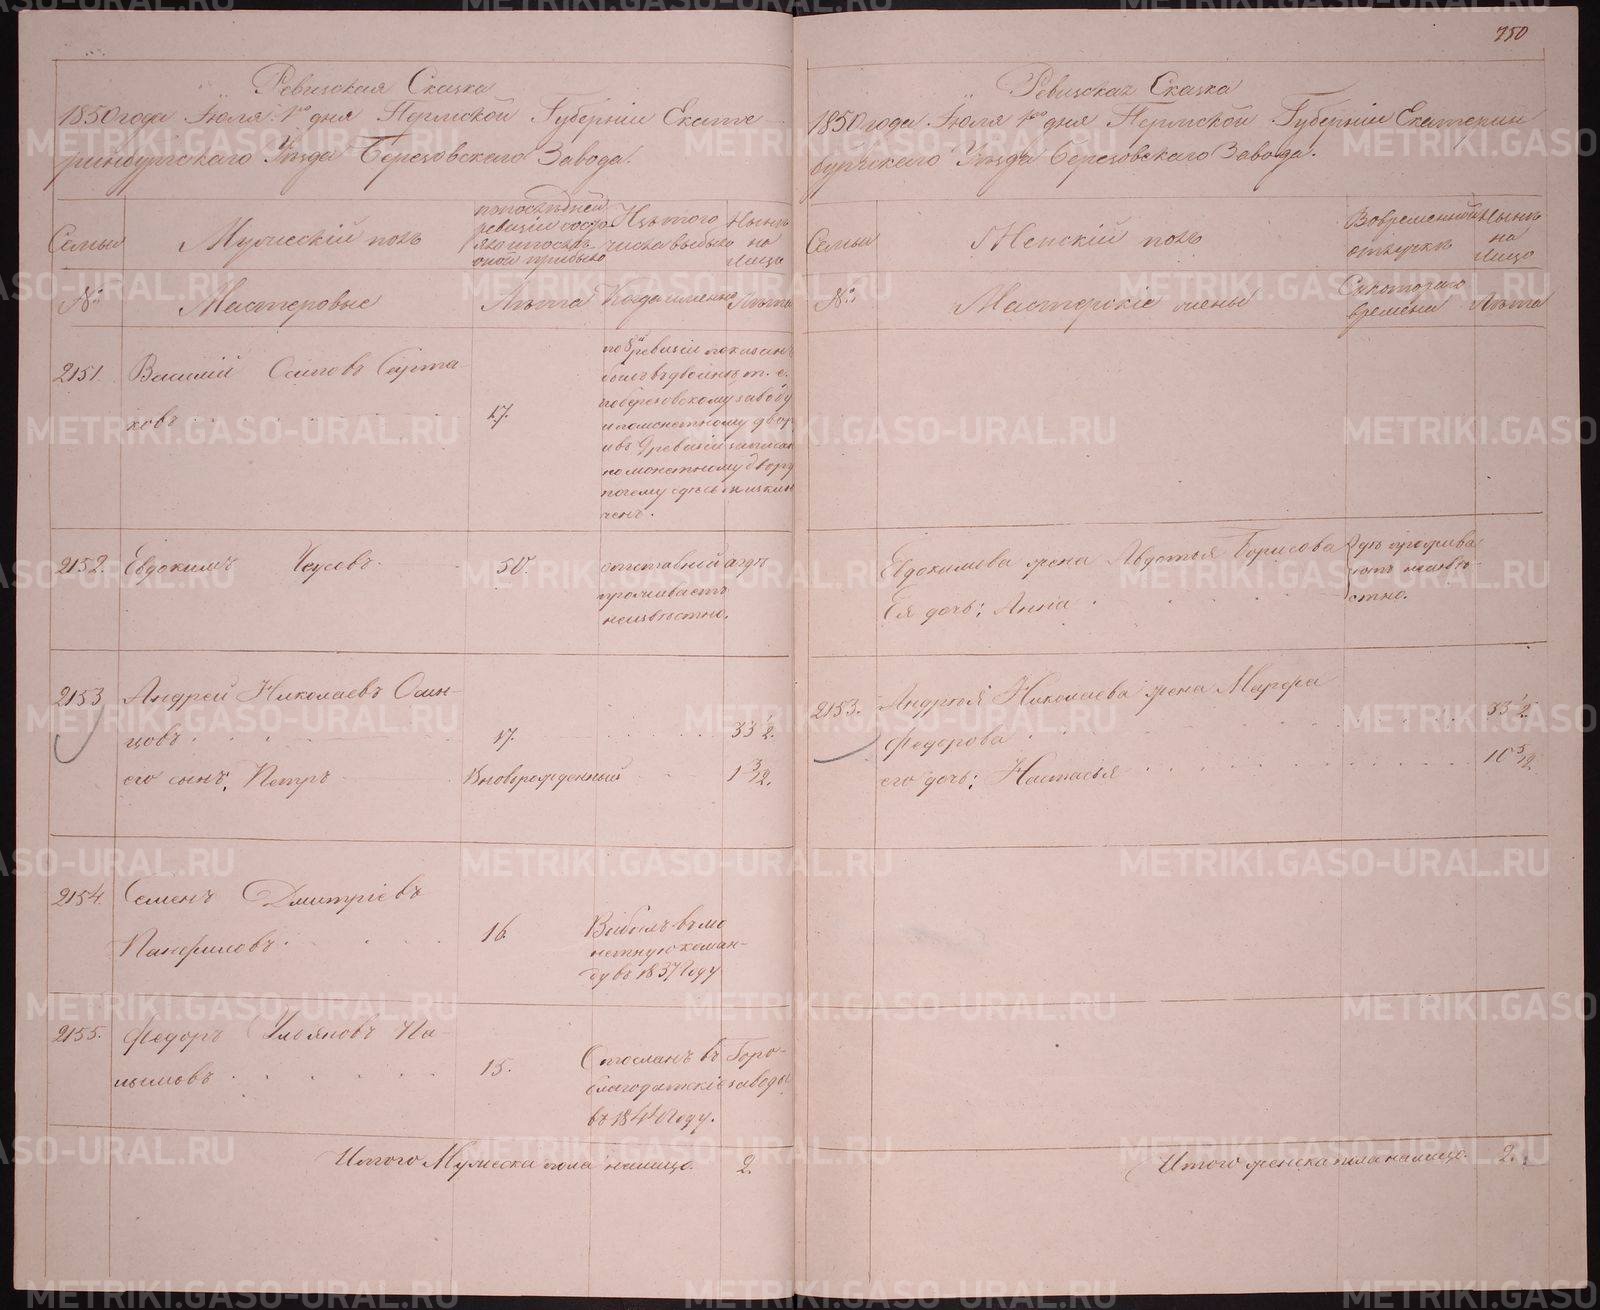 Ревизская Сказка
1850 года Июля 1го дня Пермской Губернiи Екате-
ринбургскаго Уѣзда Березовскаго Завода.
Семьи
Мужескiй полъ
по последней
ревизiи состо-
яло и послѣ
оной прибыло
Изъ того
числа выбыло
Нынѣ
на
лицо
№
Мастеровые
Лѣта
Когда именно
Лѣта
2151.
Василiй Осиповъ Сарта-
ковъ
17.
по 8й ревизiи показанъ
былъ вдвойнѣ, т. е.
по березовскому заводу
и по монетному двору
и въ 9 ревизiи записанъ
по монетному двору
почему здѣсь и исклю-
ченъ.
2152.
Евдокимъ Чусовъ.
50.
отставный а гдѣ
проживаетъ
неизвѣстно.
2153
Андрей Николаевъ Осин-
цовъ
17.
33 1/2.
его сынъ, Петръ
Вноворожденный
1 3/12.
2154.
Семенъ Дмитрiевъ
Панфиловъ.
16.
Выбылъ въ мо-
нетную коман-
ду въ 1837 году
2155.
Федоръ Ульяновъ Па-
15.
Отосланъ въ Горо-
благодатскiе заводы
въ 1844 году.
Итого Мужеска пола налицо. 2.
750
Ревизская Сказка
1850 года Июля 1го дня Пермской Губернiи Екатерин
бургскаго Уѣзда Березовскаго Завода.
Семьи
Женскiй полъ
Во временной
отлучкѣ
Нынѣ
на
лицо
№
Мастерскiе жены
Съ котораго
времени
Лѣта
Евдокимова жена Авдотья Борисова
Ея дочь; Анна
Гдѣ прожива-
ютъ неизвѣ-
стно.
2153.
Андрея Николаева жена Марфа
Федорова
35 1/2.
его дочь; Настасья
10 5/12.
Итого женска пола налицо. 2.
METRIKI.GASO-URAL.RU